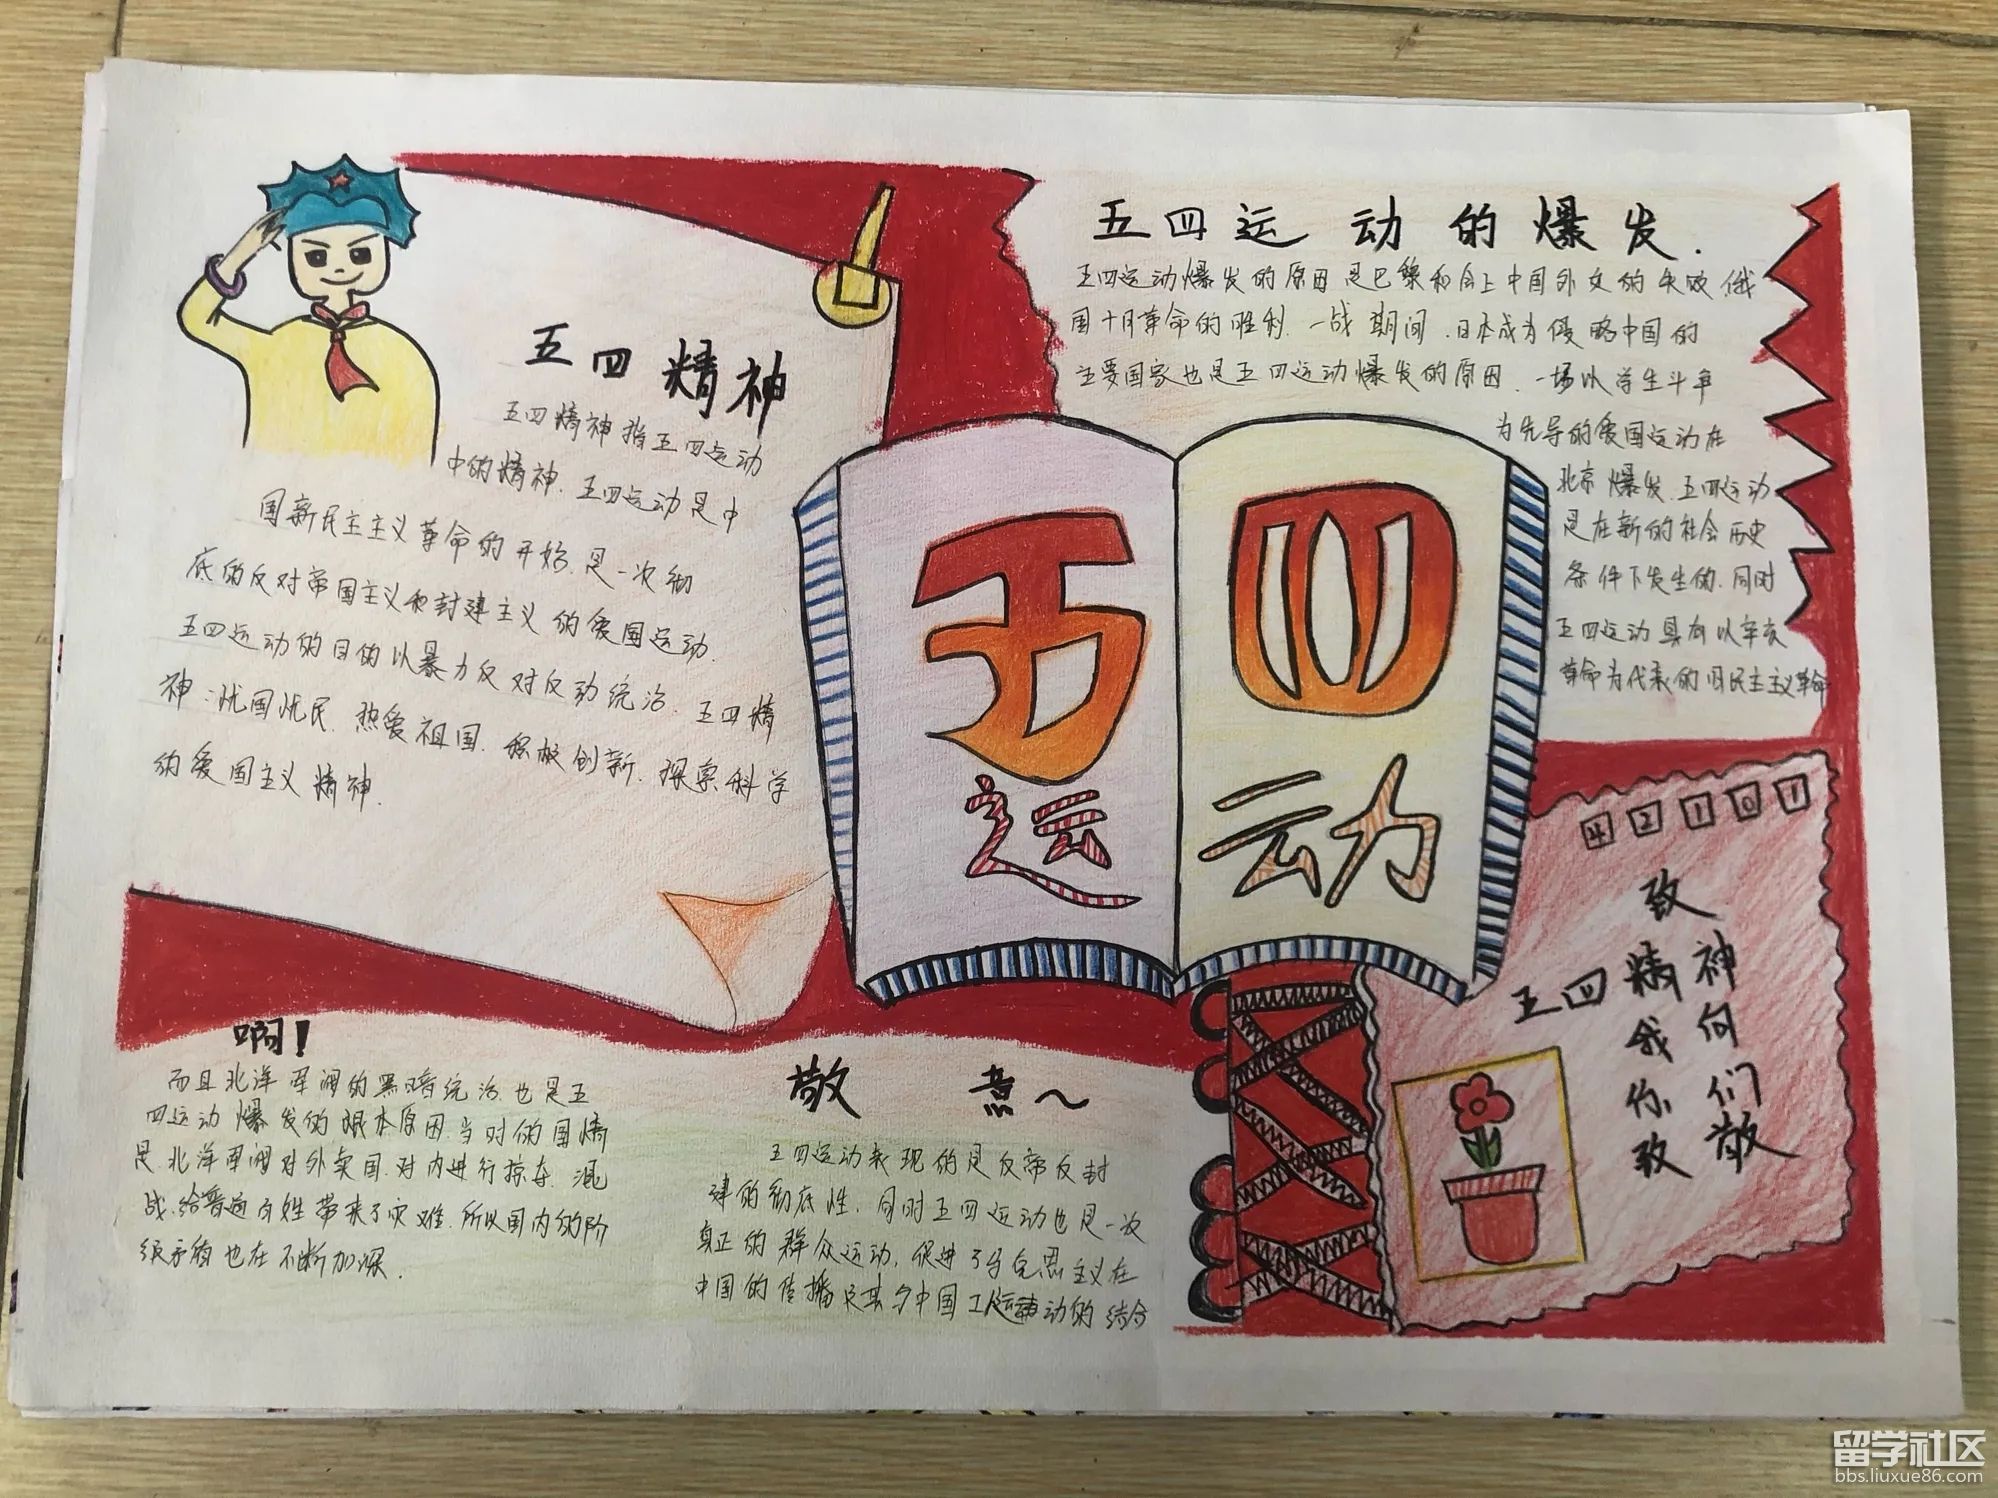 五四精神
五四精神指五四运动
中的精神.五四运动是中
国新民主主义革命的开始.是一次彻
底的反对帝国主义和封建主义的爱国运动.
五四运动的目的以暴力反对反动统治.五四精
神:忧国忧民.热爱祖国.积极创新.探索科学
的爱国主义精神.
五四运动的爆发.
五四运动爆发的原因是巴黎和会上中国外交的失败俄
国十月革命的胜利.一战期间.日本成为侵略中国的
主要国家也是五四运动爆发的原因.一场以学生斗争
为先导的爱国运动在
北京爆发.五四运动
是在新的社会历史
条件下发生的.同时
五四运动具有以辛亥
革命为代表的旧民主主义革命
五四
运动
42101
致
五四精神
我向
你们
致敬
啊!
而且北洋军阀的黑暗统治也是五
四运动爆发的根本原因.当时的国情
是.北洋军阀对外卖国.对内进行掠夺.混
战.给普通百姓带来了灾难.所以国内的阶
级矛盾也在不断加深.
敬意~
五四运动表现的是反帝反封
建的彻底性.同时五四运动也是一次
真正的群众运动,促进了马克思主义在
中国的传播及其与中国工人运动的结合
留学社区
bbs.liuxue86.com